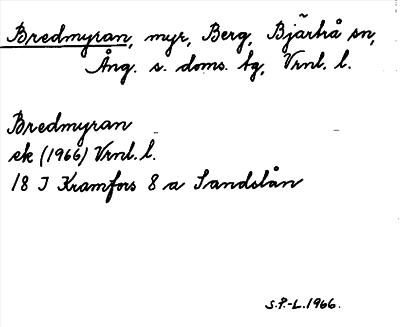 Bredmyran, myr, Berg, Bjärtrå sn,
Ång. s. doms. bg, Vrnl. l.
Bredmyran
ek (1966) Vrnl. l.
18 J Kramfors 8 a Sandslån
S.P.-L. 1966.